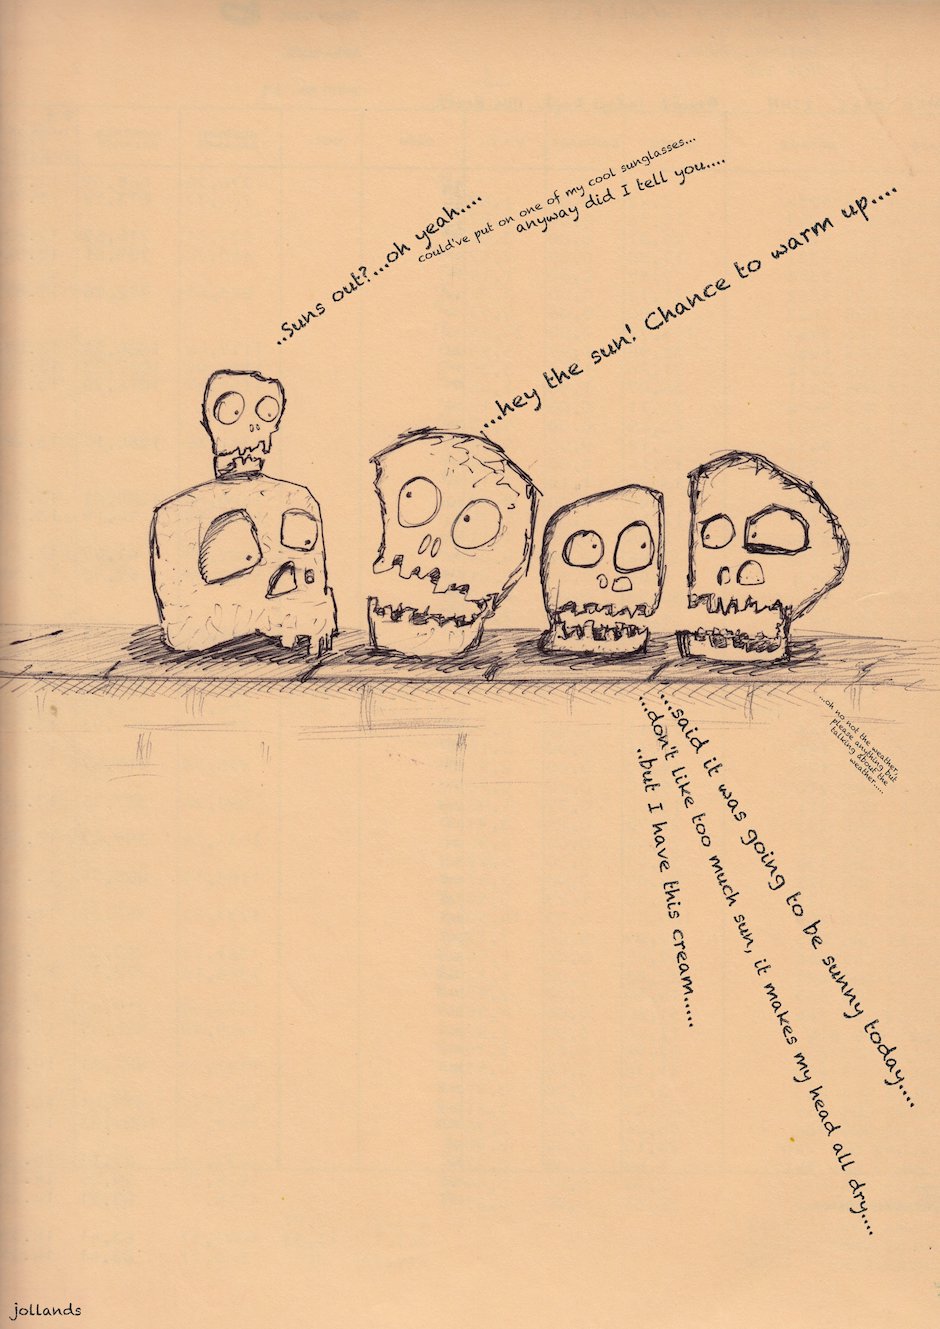 ..Suns out?...oh yeah....
could've put on one of my cool sunglasses...
anyway did I tell you....
...hey the sun! Chance to warm up....
....said it was going to be sunny today....
...don't like too much sun, it makes my head all dry....
..but I have this cream.....
...oh no not the weather,
please anything but
talking about the
weather.....
jollands